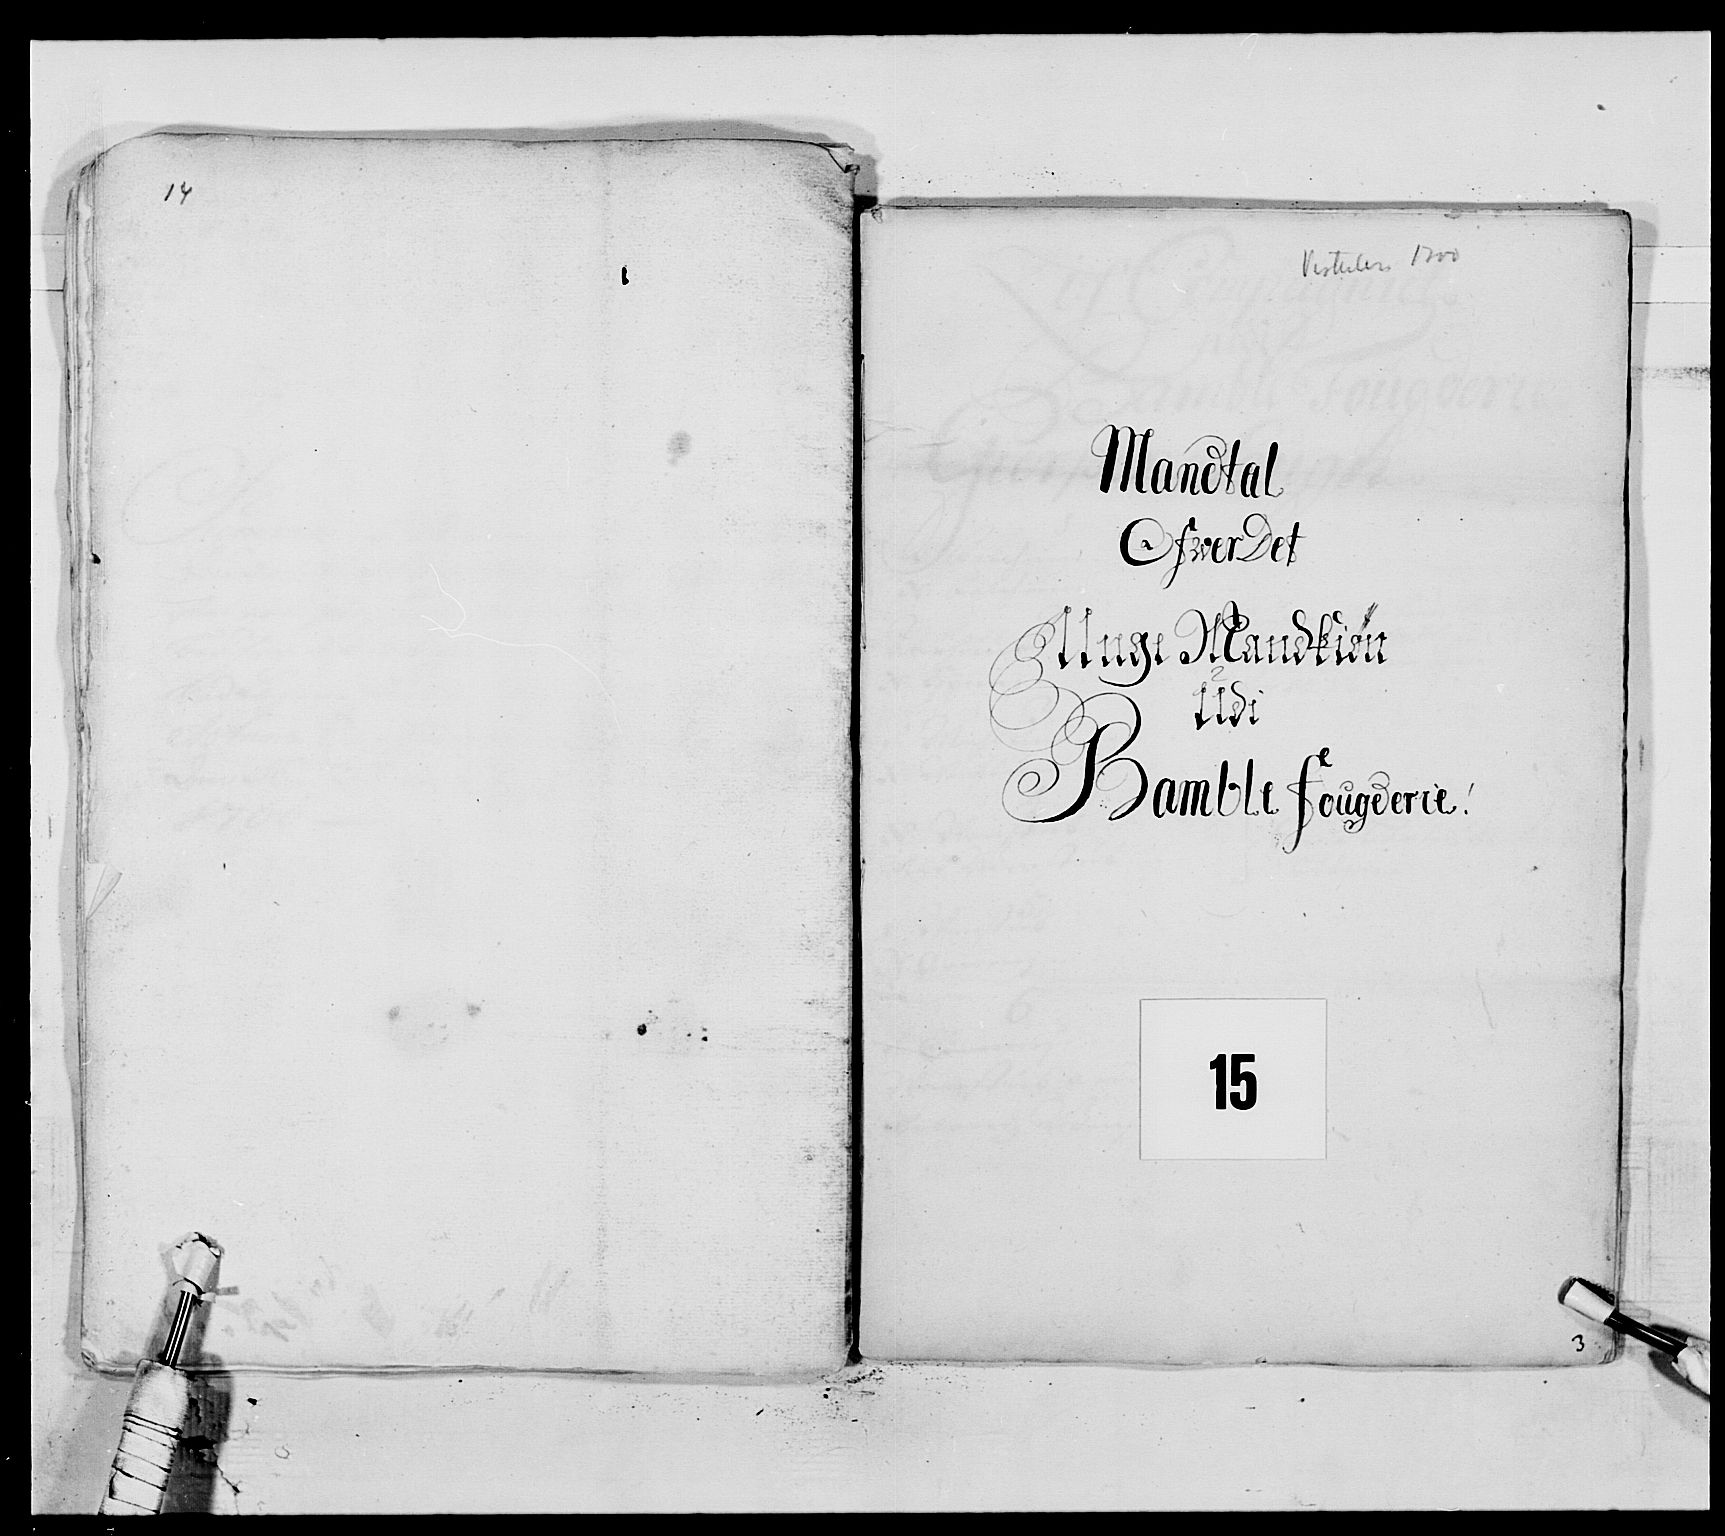 14
1700
Mandtal
Ofwer Det
Unge Mandkiön
Udi
Bamble fougderie!
15
3